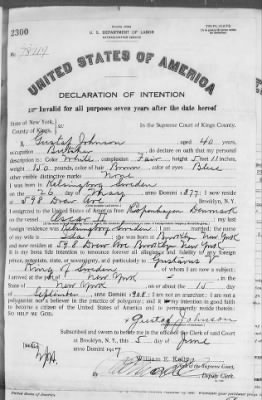 2300
U. S. DEPARTMENT OF LABOR
NATURALIZATION SERVICE
No. 78119
UNITED STATES OF AMERICA
DECLARATION OF INTENTION
Invalid for all purposes seven years after the date hereof
State of New York,
County of Kings, ss:
In the Supreme Court of Kings County.
I, Gustaf Johnson, aged 40 years,
occupation Butcher, do declare on oath that my personal
description is: Color White, complexion Fair, height 5 feet 11 inches,
weight 150 pounds, color of hair Brown, color of eyes Blue
other visible distinctive marks None
I was born in Helsingborg Sweden
on the day of May, anno Domini 1877; I now reside
at 598 Drew Ave Brooklyn, N. Y.
I emigrated to the United States of America from Kopenhagen Denmark
on the vessel Oscar II; my last
foreign residence was Helsingborg Sweden. I am married; the name
of my wife is; she was born in Brooklyn New York
and now resides at 598 Drew Ave Brooklyn New York
It is my bona fide intention to renounce forever all allegiance and fidelity to any foreign
prince, potentate, state, or sovereignty, and particularly to Gustavus V
King of Sweden, of whom I am now a subject;
I arrived at the port of New York, in the
State of New York, on or about the 15 day
of September, anno Domini 1902. I am not an anarchist; I am not a
polygamist nor a believer in the practice of polygamy; and it is my intention in good faith
to become a citizen of the United States of America and to permanently reside therein:
SO HELP ME GOD.
Gustaf Johnson
Subscribed and sworn to before me in the office of the Clerk of said Court
at Brooklyn, N. Y., this 5 day of June
anno Domini 1917
William E. Kelly
Clerk.